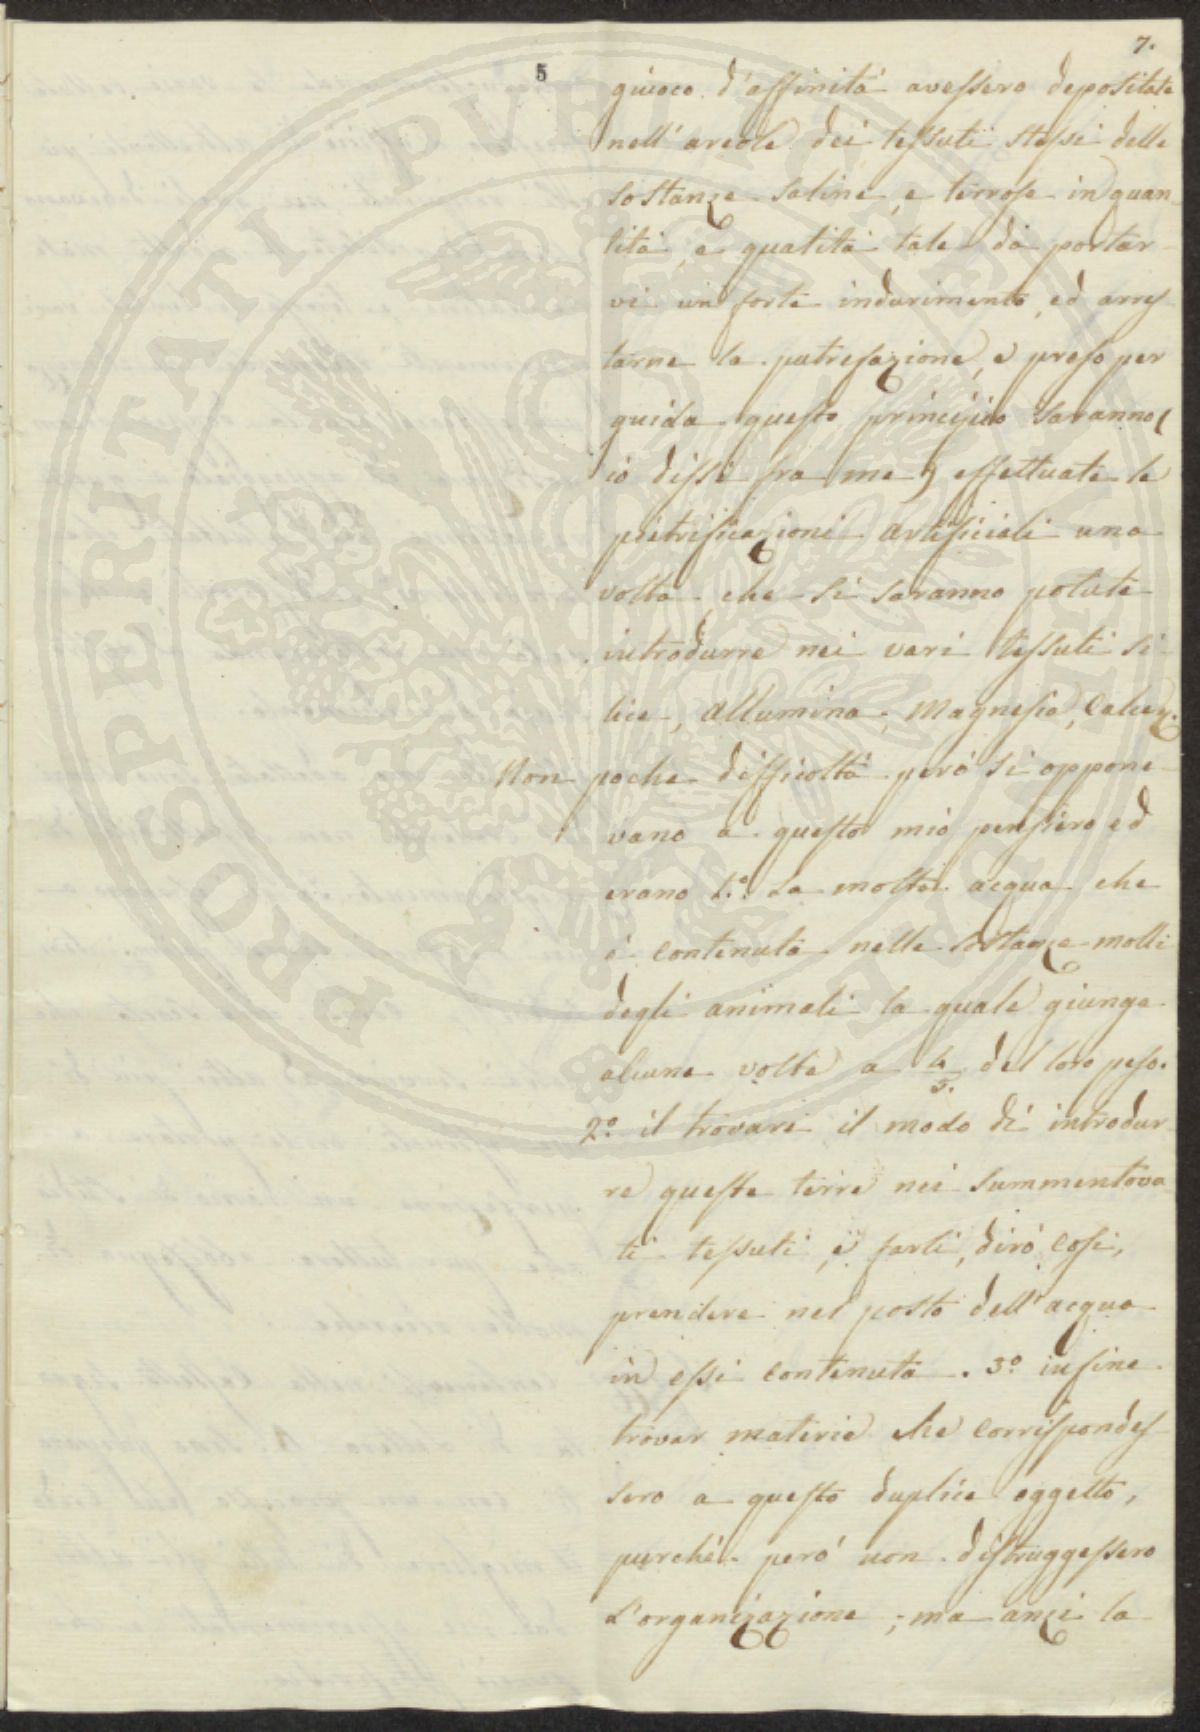 7.
5
giuoco d'affinità avessero depositate
nell'areole dei tessuti stessi delle
sostanze saline, e terrose in quan-
tità, e qualità tale da portar-
vi un forte indurimento, ed arres-
tarne la putrefazione, e preso per
guida questo principio saranno (
io dissi fra me) effettuate le
pietrificazioni artificiali una
volta, che si saranno potute
introdurre nei vari tessuti si-
lice, allumina, Magnesia, Calce
Non poche difficoltà però si oppone-
vano a questo mio pensiero ed
erano 1.º La molta acqua che
è contenuta nelle sostanze molli
degli animali la quale giunge
alcune volte a 4/5. del loro peso.
2.º il trovare il modo di introdur-
re queste terre nei summentova-
ti tessuti, e farli, dirò così,
prendere nel posto dell'acqua
in essi contenuta. 3.º infine
trovar materie che corrispondes-
sero a questo duplice oggetto,
purchè però non distruggessero
l'organizazione; ma anzi la
PROSPERITATI PVBLICAE AVGENDAE